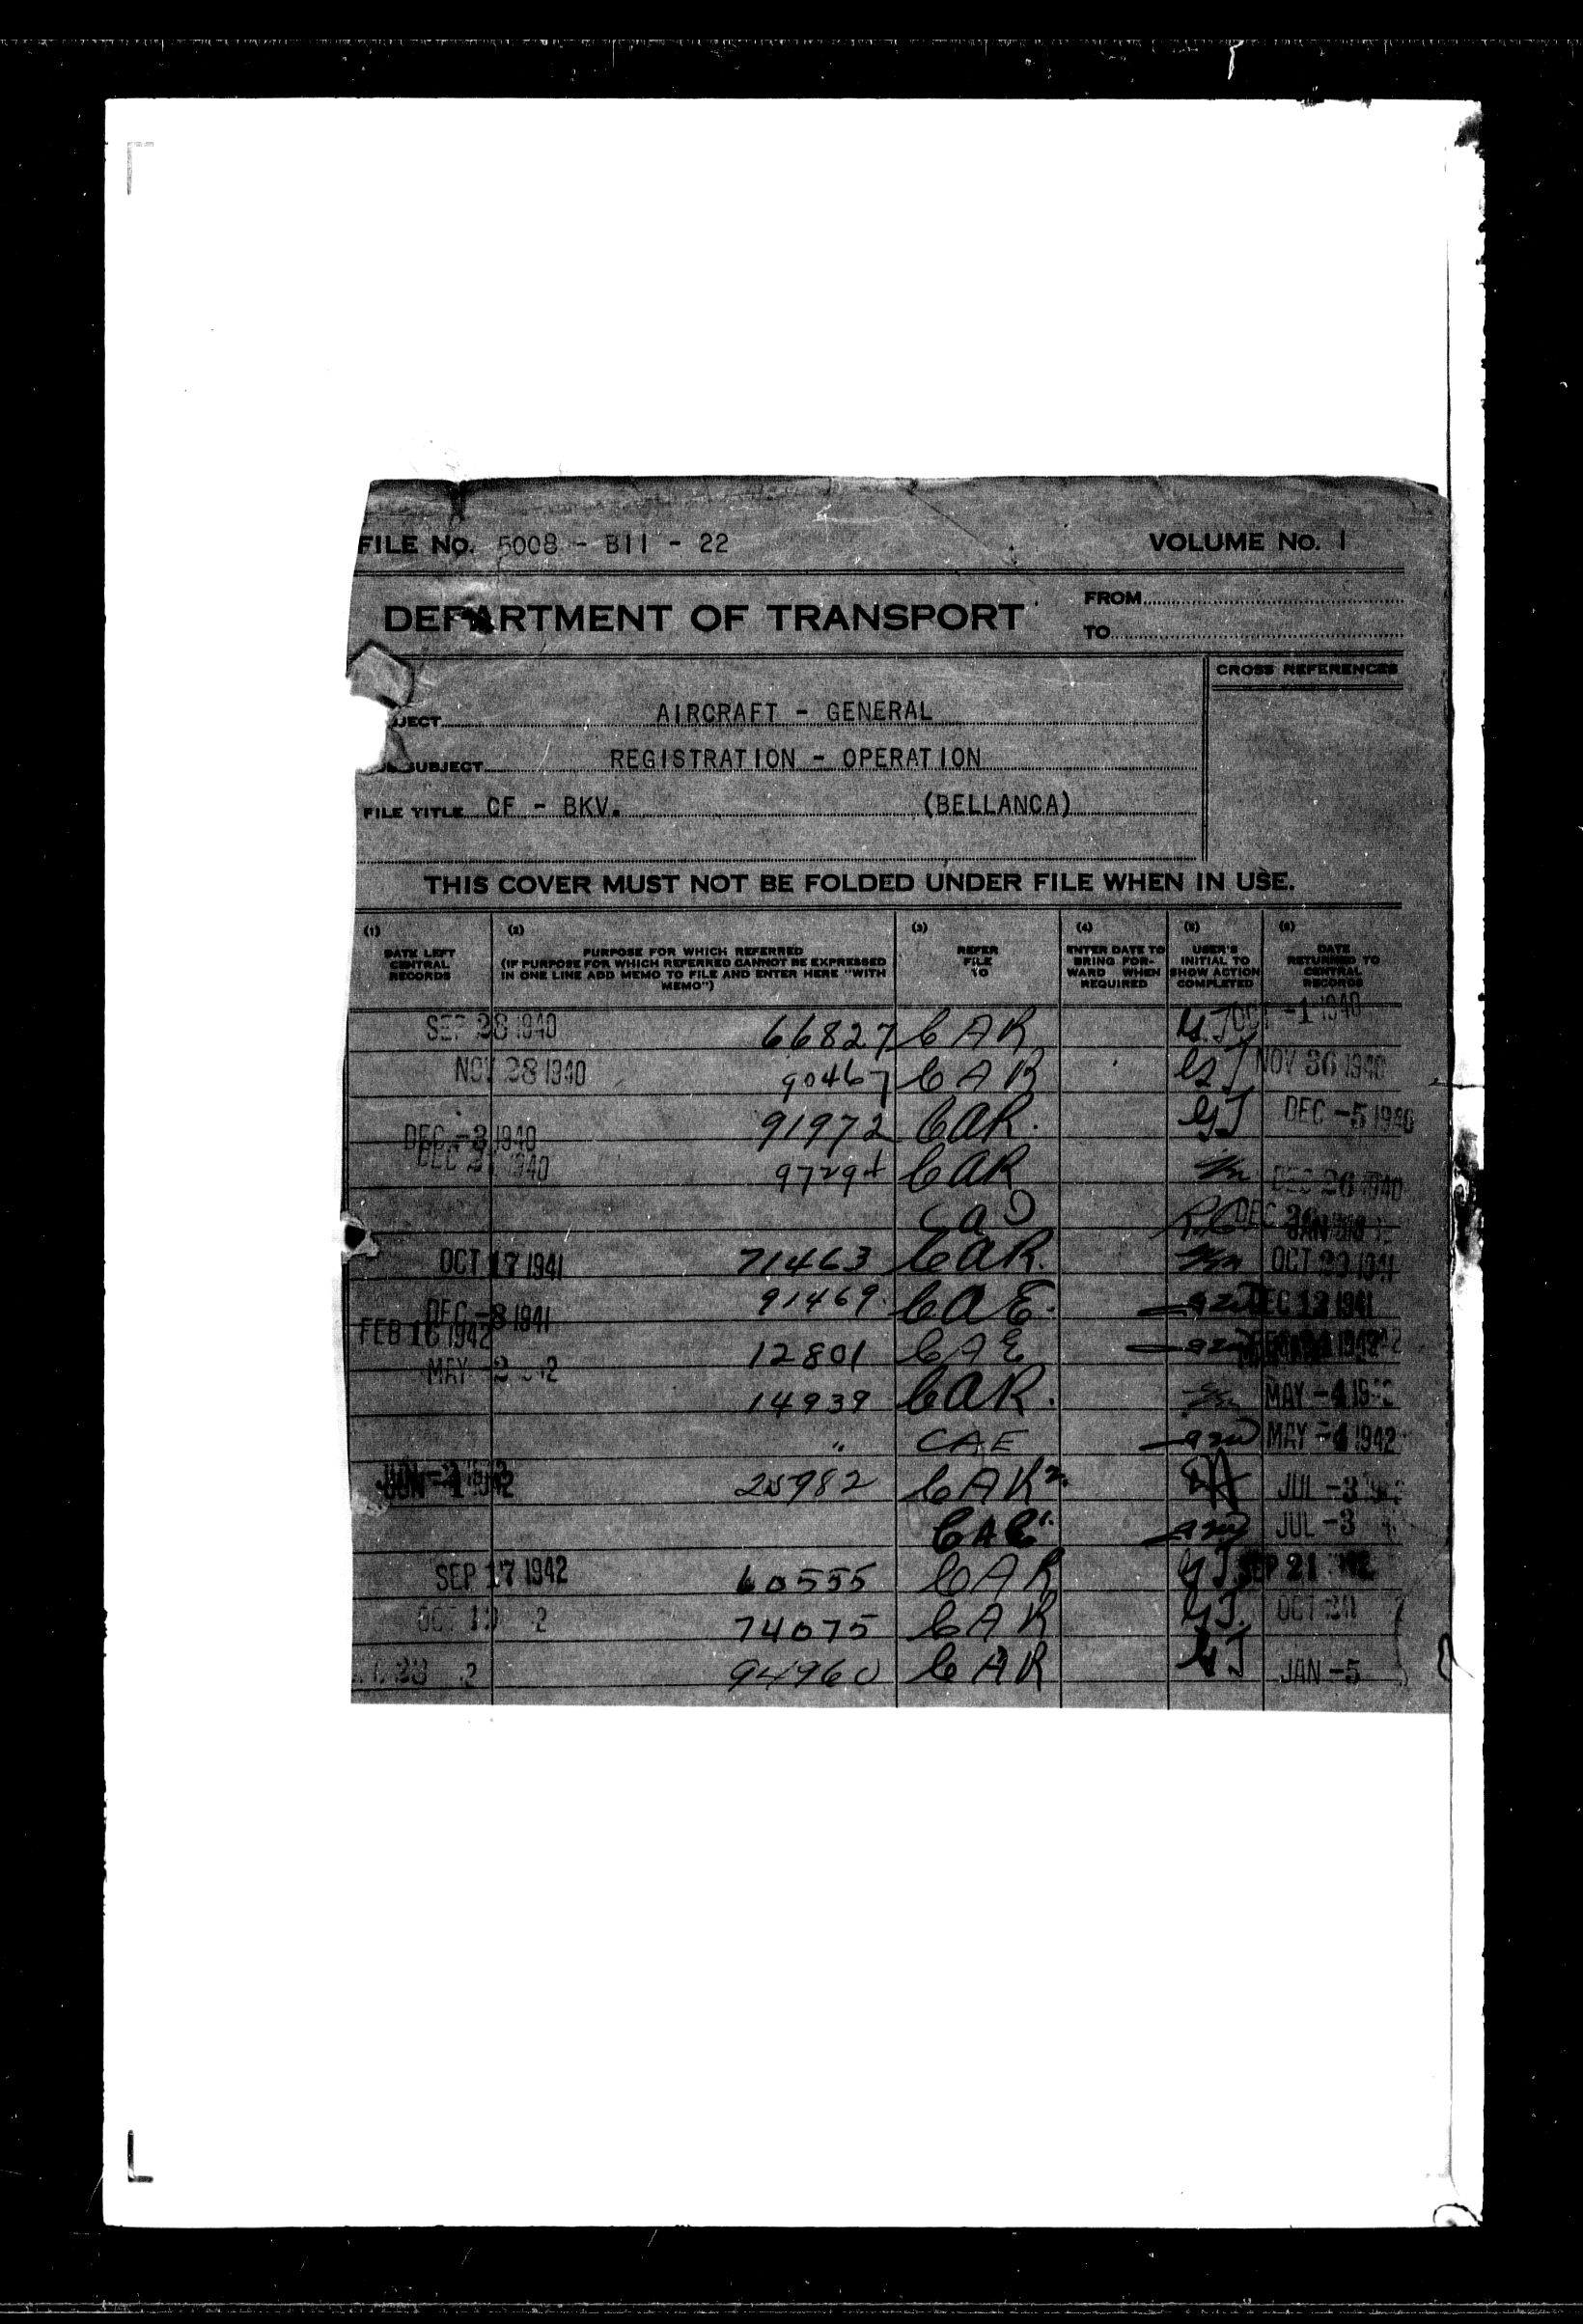 FILE NO. 5008 - B11 - 22 VOLUME NO. 1
DEPARTMENT OF TRANSPORT
FROM
TO
CROSS REFERENCES
JECT AIRCRAFT - GENERAL
SUBJECT REGISTRATION - OPERATION
FILE TITLE CF - BKV. (BELLANCA)
THIS COVER MUST NOT BE FOLDED UNDER FILE WHEN IN USE.
(1) DATE LEFT CENTRAL RECORDS
(2) PURPOSE FOR WHICH REFERRED (IF PURPOSE FOR WHICH REFERRED CANNOT BE EXPRESSED IN ONE LINE ADD MEMO TO FILE AND ENTER HERE "WITH MEMO")
(3) REFER FILE TO
(4) ENTER DATE TO BRING FORWARD WHEN REQUIRED
(5) USER'S INITIAL TO SHOW ACTION COMPLETED
(6) DATE RETURNED TO CENTRAL RECORDS
SEP 28 1940 66827 CAR -1 1940
NOV 28 1940 90467 CAR NOV 1940
DEC -3 1940 91972 CAR. GJ DEC -5 1940
DEC 1940 CAR DEC 26 1940
CAO DEC
OCT 17 1941 71463 CAR. OCT 1941
DEC -8 1941 91469 CAE. DEC 1941
FEB 16 1942 12801 CAE
MAY 14939 CAR. MAY -4
" CAE MAY -4 1942
CAR 2. JUL -3
CAE 1. JUL -3
SEP 17 1942 60555 CAR GJ SEP 21
OCT 74075 CAR GJ. OCT
94960 CAR GJ JAN -5